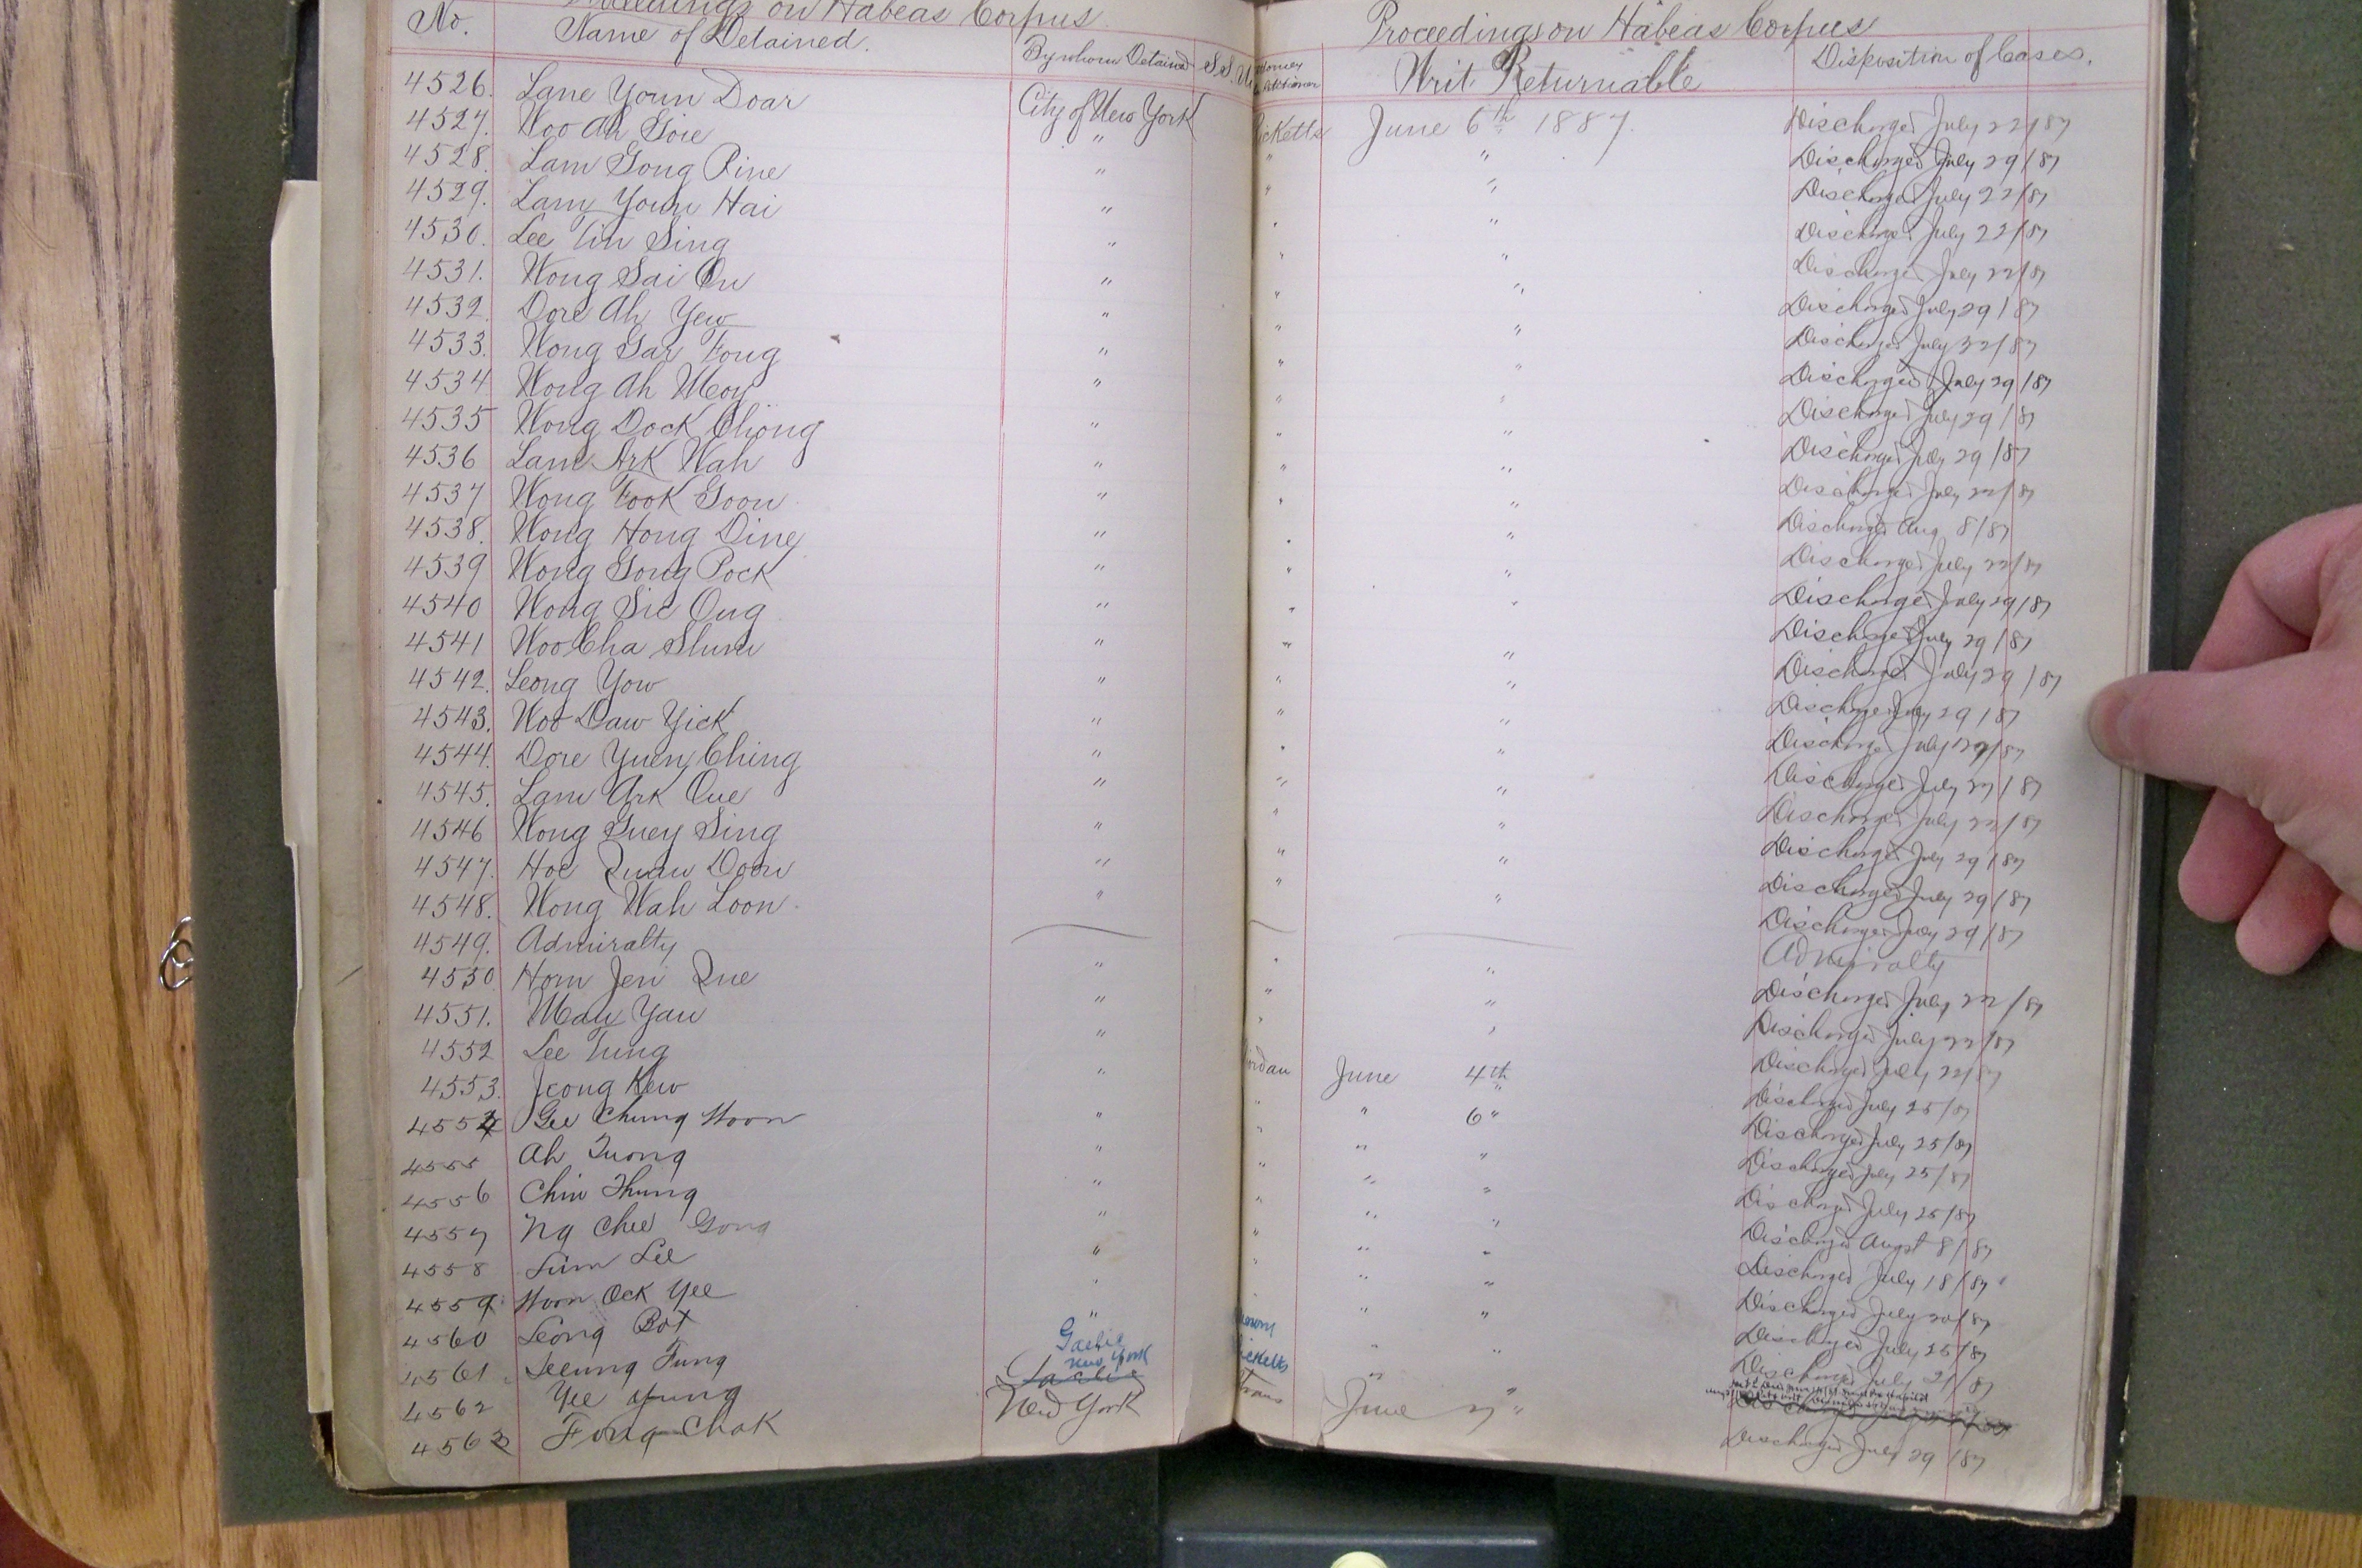 Proceedings on Habeas Corpus
No. Name of Detained. By whom Detained S.S.
4526. Lane Youn Doar City of New York
4527. Woo Ah Goie "
4528. Lam Gong Pine "
4529. Lam Youn Hai "
4530. Lee Tin Sing "
4531. Wong Sai On "
4532. Dore Ah Yew "
4533. Wong Gar Fong "
4534 Wong Ah Moy "
4535 Wong Dock Chong "
4536 Lam Ark Wah "
4537 Wong Fook Goon "
4538. Wong Hong Ding "
4539 Wong Gong Pock "
4540 Wong Sic Oug "
4541 Woo Cha Shun "
4542. Leong Yow "
4543. Woo Daw Yick "
4544. Dore Yuen Ching "
4545. Lam Ark Que "
4546 Wong Guey Sing "
4547. Hoe Quan Doon "
4548. Wong Wah Loon. "
4549. Admiralty
4550 Hom Jen Que "
4551. Mau Yau "
4552 Lee Tung "
4553. Jeong Kew "
4554 Gee Chung Hoon "
4555 Ah Tuong "
4556 Chin Thung "
4557 Ng Chee Gong "
4558 Lum Lee "
4559 Hoon Ock Yee "
4560 Leong Bot "
4561 Leeung Fung Gaelic
4562 Yee Yung New York Gaelic
4563 Fong Chak New York
Proceedings on Habeas Corpus
Writ Returnable Disposition of Cases.
June 6th 1887. Discharged July 22/87
" " Discharged July 29/87
" " Discharged July 22/87
" " Discharged July 22/87
" " Discharged July 22/87
" " Discharged July 29/87
" " Discharged July 22/87
" " Discharged July 29/87
" " Discharged July 29/87
" " Discharged July 29/87
" " Discharged July 22/87
" " Discharged Aug 8/87
" " Discharged July 22/87
" " Discharged July 29/87
" " Discharged July 29/87
" " Discharged July 29/87
" " Discharged July 29/87
" " Discharged July 29/87
" " Discharged July 27/87
" " Discharged July 22/87
" " Discharged July 29/87
" " Discharged July 29/87
" " Discharged July 29/87
Admiralty
" " Discharged July 22/87
" " Discharged July 22/87
" " Discharged July 22/87
June 4th Discharged July 25/87
" 6" Discharged July 25/87
" " Discharged July 25/87
" " Discharged July 25/87
" " Discharged Augst 8/87
" " Discharged July 18/87
" " Discharged July 20/87
" " Discharged July 25/87
" " Discharged July 21/87
June 7" Discharged July 29/87